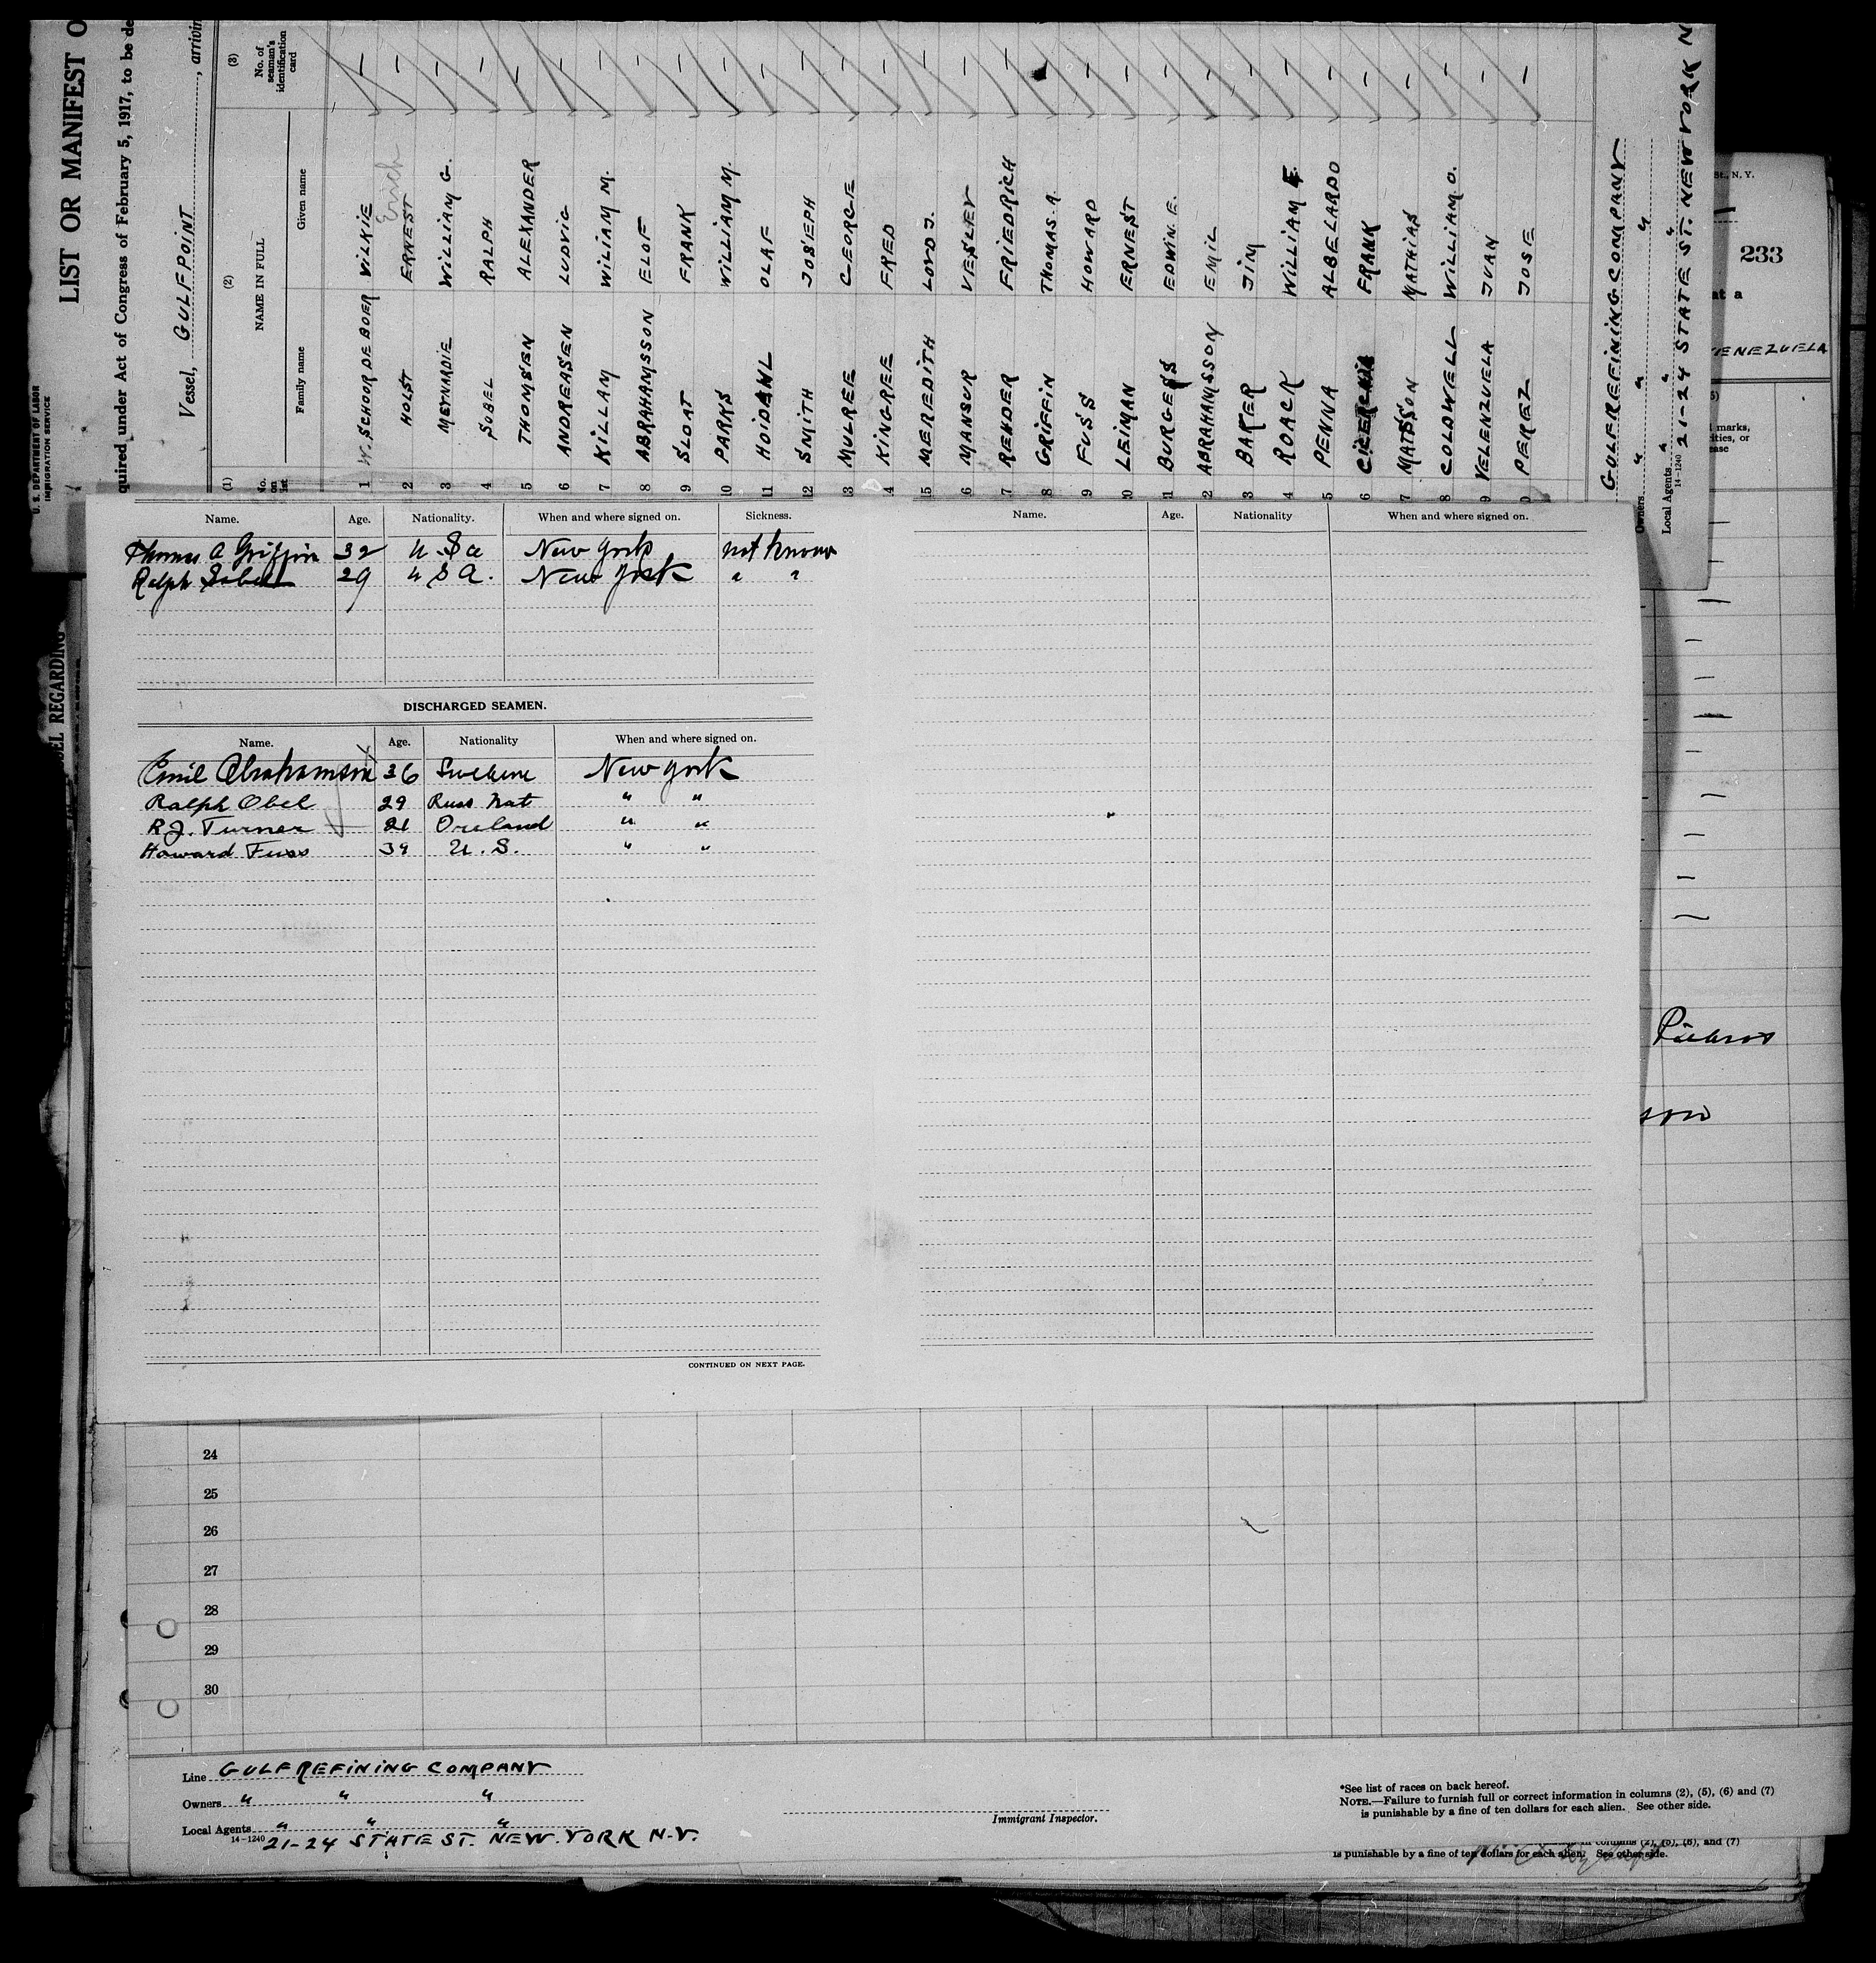 U. S. DEPARTMENT OF LABOR
IMMIGRATION SERVICE
LIST OR MANIFEST O
quired under Act of Congress of February 5, 1917, to be de
Vessel, GULFPOINT, arrivin
(1) (2) (3)
No. on list NAME IN FULL No. of seaman's identification card
Family name Given name
1 W. SCHOORDEBOER WILKIE —
2 HOLST ERNEST Erich —
3 MEYNARDIE WILLIAM G. —
4 SOBEL RALPH —
5 THOMSEN ALEXANDER —
6 ANDREASEN LUDVIG —
7 KILLAM WILLIAM M. —
8 ABRAHAMSSON ELOF —
9 SLOAT FRANK —
10 PARKS WILLIAM M. —
11 HOIDAHL OLAF —
12 SMITH JOSEPH —
13 MULREE GEORGE —
14 KINGREE FRED —
15 MEREDITH LOYD J. —
16 MANSUR VESLEY —
17 RENDER FRIEDRICH —
18 GRIFFIN THOMAS. A. —
9 FUSS HOWARD —
0 LEIMAN ERNEST —
1 BURGESS EDWIN. E. —
2 ABRAHAMSSON EMIL —
3 BAKER JIM —
4 ROACK WILLIAM F. —
5 PENNA ALBELARDO —
6 FRANK —
7 MATSSON MATHIAS —
8 COLDWELL WILLIAM. O. —
9 VELENZUELA JUAN —
0 PEREZ JOSE —
GULF REFINING COMPANY
Owners " " "
Local Agents " " "
14-1240 21-24 STATE ST. NEW YORK N
St., N. Y.
233
at a
VENEZUELA
marks,
ities, or
ease
EL REGARDING
Name. Age. Nationality. When and where signed on. Sickness.
Thomas A Griffin 32 U.S a New York not known
Ralph Sobel 29 U S A. New York " "
DISCHARGED SEAMEN.
Name. Age. Nationality When and where signed on.
Emil Abrahamson 36 New York
Ralph Obel 29 Russ Nat " "
R J. Turner 21 " "
Howard Fuss 39 U. S. " "
CONTINUED ON NEXT PAGE.
Name. Age. Nationality When and where signed on.
"
son
24
25
26
27
28
29
30
Line GULF REFINING COMPANY
Owners " " "
Local Agents " " "
14-1240 21-24 STATE ST. NEW. YORK N.Y.
Immigrant Inspector.
*See list of races on back hereof.
NOTE.—Failure to furnish full or correct information in columns (2), (5), (6) and (7)
is punishable by a fine of ten dollars for each alien. See other side.
in columns (2), (5), (6), and (7)
is punishable by a fine of ten dollars for each alien. See other side.